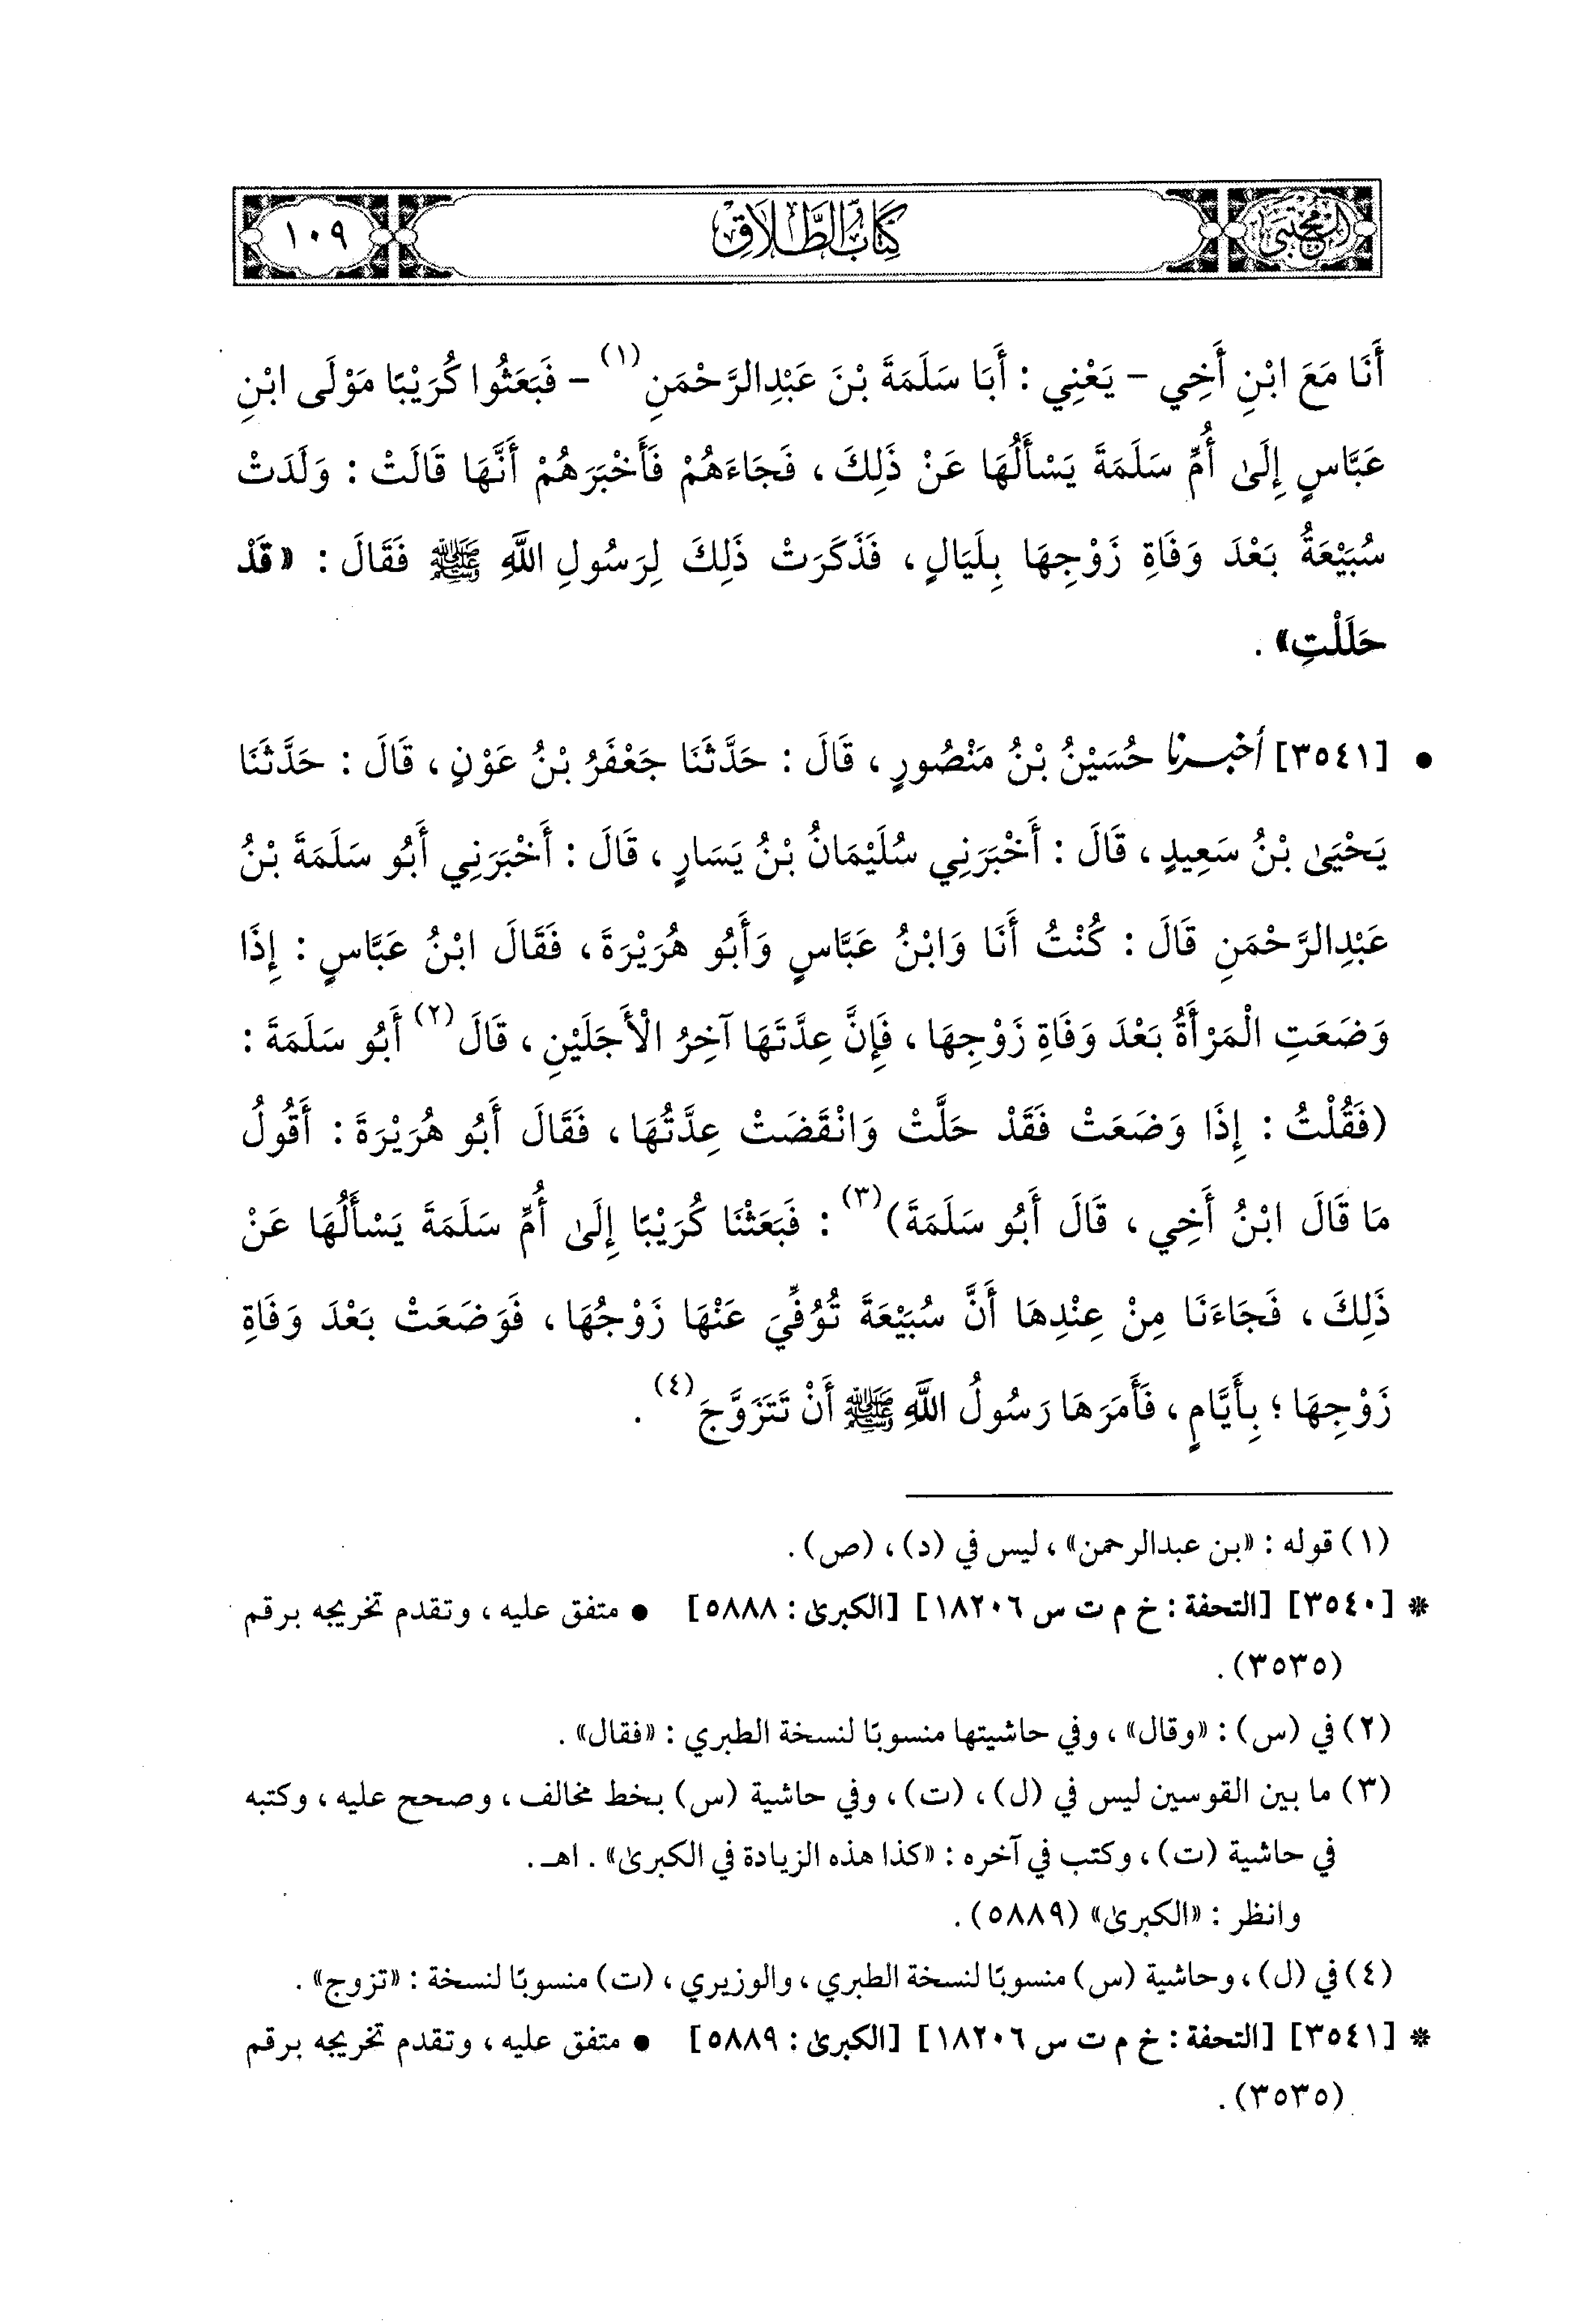 المجتبى
كِتَابُ الطَّلَاقِ
١٠٩
أَنَا مَعَ ابْنِ أَخِي - يَعْنِي : أَبَا سَلَمَةَ بْنَ عَبْدِالرَّحْمَنِ(١) - فَبَعَثُوا كُرَيْبًا مَوْلَى ابْنِ
عَبَّاسٍ إِلَىٰ أُمِّ سَلَمَةَ يَسْأَلُهَا عَنْ ذَلِكَ ، فَجَاءَهُمْ فَأَخْبَرَهُمْ أَنَّهَا قَالَتْ : وَلَدَتْ
سُبَيْعَةُ بَعْدَ وَفَاةِ زَوْجِهَا بِلَيَالٍ ، فَذَكَرَتْ ذَلِكَ لِرَسُولِ اللَّهِ ﷺ فَقَالَ : «قَدْ
حَلَلْتِ» .
• [٣٥٤١] أخبرنا حُسَيْنُ بْنُ مَنْصُورٍ ، قَالَ : حَدَّثَنَا جَعْفَرُ بْنُ عَوْنٍ ، قَالَ : حَدَّثَنَا
يَحْيَىٰ بْنُ سَعِيدٍ ، قَالَ : أَخْبَرَنِي سُلَيْمَانُ بْنُ يَسَارٍ ، قَالَ : أَخْبَرَنِي أَبُو سَلَمَةَ بْنُ
عَبْدِالرَّحْمَنِ قَالَ : كُنْتُ أَنَا وَابْنُ عَبَّاسٍ وَأَبُو هُرَيْرَةَ ، فَقَالَ ابْنُ عَبَّاسٍ : إِذَا
وَضَعَتِ الْمَرْأَةُ بَعْدَ وَفَاةِ زَوْجِهَا ، فَإِنَّ عِدَّتَهَا آخِرُ الْأَجَلَيْنِ ، قَالَ(٢) أَبُو سَلَمَةَ :
(فَقُلْتُ : إِذَا وَضَعَتْ فَقَدْ حَلَّتْ وَانْقَضَتْ عِدَّتُهَا ، فَقَالَ أَبُو هُرَيْرَةَ : أَقُولُ
مَا قَالَ ابْنُ أَخِي ، قَالَ أَبُو سَلَمَةَ)(٣) : فَبَعَثْنَا كُرَيْبًا إِلَىٰ أُمِّ سَلَمَةَ يَسْأَلُهَا عَنْ
ذَلِكَ ، فَجَاءَنَا مِنْ عِنْدِهَا أَنَّ سُبَيْعَةَ تُوُفِّيَ عَنْهَا زَوْجُهَا ، فَوَضَعَتْ بَعْدَ وَفَاةِ
زَوْجِهَا ؛ بِأَيَّامٍ ، فَأَمَرَهَا رَسُولُ اللَّهِ ﷺ أَنْ تَتَزَوَّجَ(٤) .
(١) قوله : «بن عبدالرحمن» ، ليس في (د) ، (ص) .
* [٣٥٤٠] [التحفة : خ م ت س ١٨٢٠٦] [الكبرىٰ : ٥٨٨٨] • متفق عليه ، وتقدم تخريجه برقم
(٣٥٣٥) .
(٢) في (س) : «وقال» ، وفي حاشيتها منسوبًا لنسخة الطبري : «فقال» .
(٣) ما بين القوسين ليس في (ل) ، (ت) ، وفي حاشية (س) بخط مخالف ، وصحح عليه ، وكتبه
في حاشية (ت) ، وكتب في آخره : «كذا هذه الزيادة في الكبرىٰ» . اهـ .
وانظر : «الكبرىٰ» (٥٨٨٩) .
(٤) في (ل) ، وحاشية (س) منسوبًا لنسخة الطبري ، والوزيري ، (ت) منسوبًا لنسخة : «تزوج» .
* [٣٥٤١] [التحفة : خ م ت س ١٨٢٠٦] [الكبرىٰ : ٥٨٨٩] • متفق عليه ، وتقدم تخريجه برقم
(٣٥٣٥) .